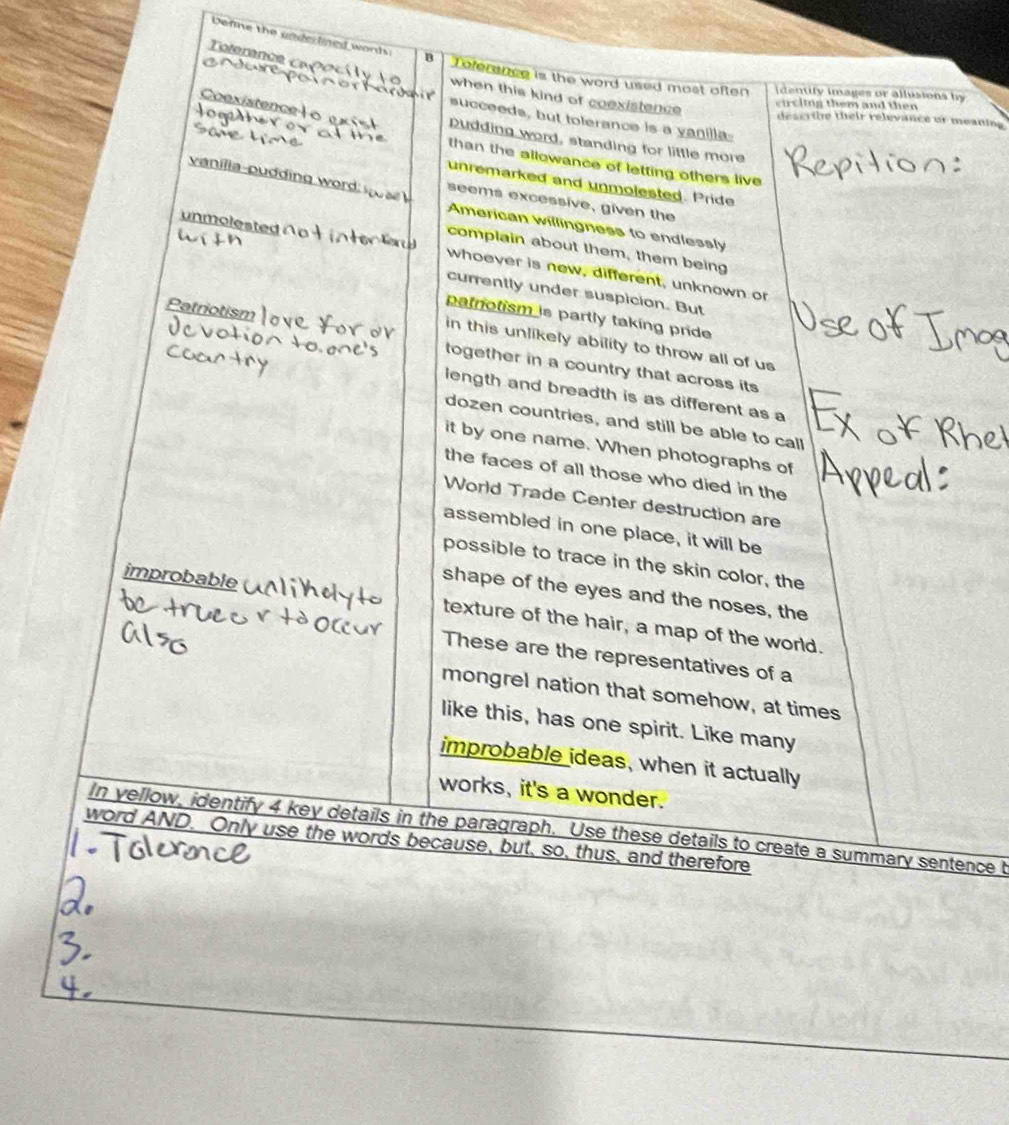 Define the underlined words:
Tolerance capacity to
endure pain or hardship
Coexistence to exist
together or at the
same time
vanilla-pudding word: weak
unmolested not interfered
with
Patriotism love for or
devotion to one's
country
improbable unlikely to
be true or to occur
also
B
Tolerance is the word used most often
when this kind of coexistence
succeeds, but tolerance is a vanilla-
pudding word, standing for little more
than the allowance of letting others live
unremarked and unmolested. Pride
seems excessive, given the
American willingness to endlessly
complain about them, them being
whoever is new, different, unknown or
currently under suspicion. But
patriotism is partly taking pride
in this unlikely ability to throw all of us
together in a country that across its
length and breadth is as different as a
dozen countries, and still be able to call
it by one name. When photographs of
the faces of all those who died in the
World Trade Center destruction are
assembled in one place, it will be
possible to trace in the skin color, the
shape of the eyes and the noses, the
texture of the hair, a map of the world.
These are the representatives of a
mongrel nation that somehow, at times
like this, has one spirit. Like many
improbable ideas, when it actually
works, it's a wonder.
Identify images or allusions by
circling them and then
describe their relevance or meaning
Repition:
Use of Imag
Ex of Rhet
Appeal:
In yellow, identify 4 key details in the paragraph. Use these details to create a summary sentence
word AND. Only use the words because, but, so, thus, and therefore
1. Tolerance
2.
3.
4.